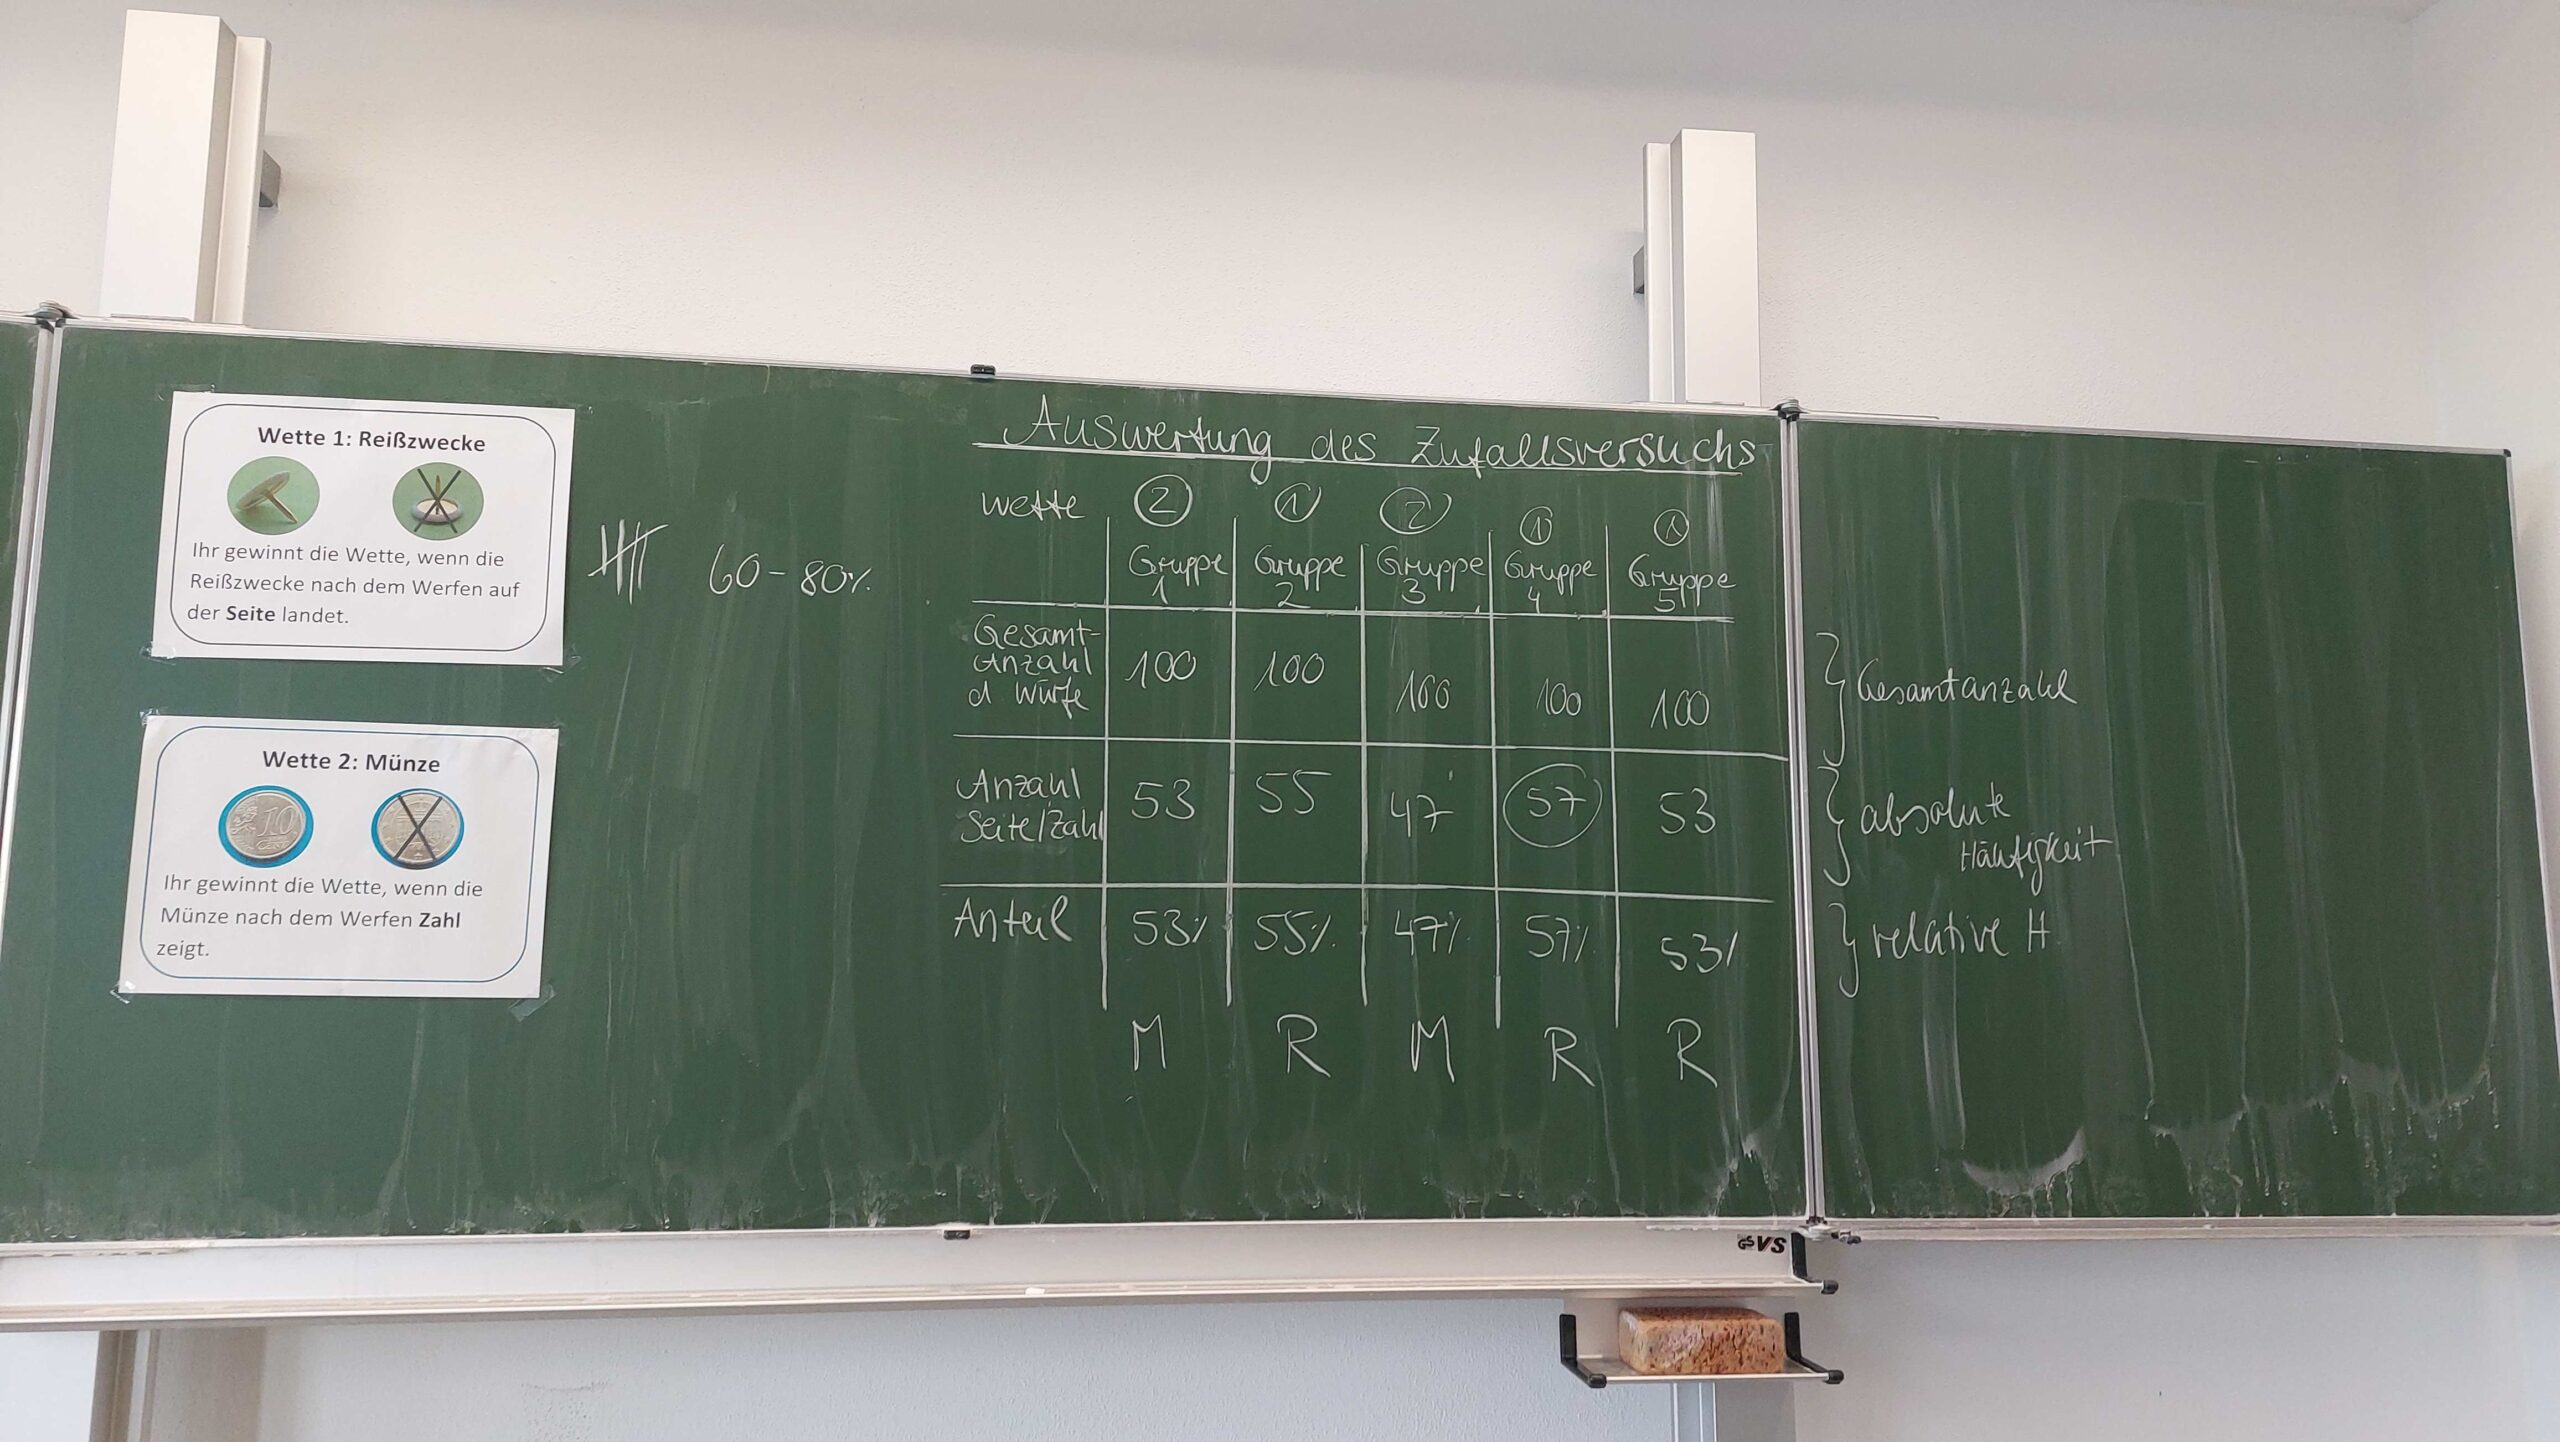 Wette 1: Reißzwecke
Ihr gewinnt die Wette, wenn die
Reißzwecke nach dem Werfen auf
der Seite landet.
60-80%
Wette 2: Münze
10
CENT
Ihr gewinnt die Wette, wenn die
Münze nach dem Werfen Zahl
zeigt.
Auswertung des Zufallsversuchs
Wette 2 1 2 1 1
Gruppe 1 Gruppe 2 Gruppe 3 Gruppe 4 Gruppe 5
Gesamt-
Anzahl
d Würfe
100 100 100 100 100
Anzahl
Seite/Zahl
53 55 47 57 53
Anteil 53% 55% 47% 57% 53%
M R M R R
Gesamtanzahl
absolute
Häufigkeit
relative H
GS VS